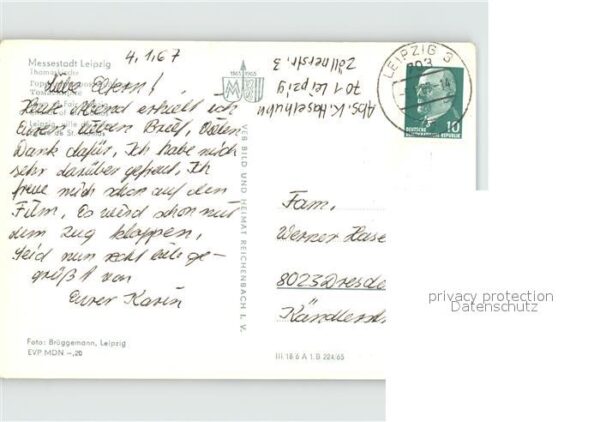 4.1.67
Messestadt Leipzig
Thomaskirche
Liebe Eltern!
Heute Abend erhielt ich
Euren lieben Brief, Vielen
Dank dafür, Ich habe mich
sehr darüber gefreut, Ich
freue mich schon auf den
Film, Es wird schon mit
dem Zug klappen,
Seid nun recht lieb ge-
grüßt von
Eurer Karin
Foto: Brüggemann, Leipzig
EVP MDN -,20
1165 1965
MM
VEB BILD UND HEIMAT REICHENBACH I. V.
Abs. K. Haselhuhn
701 Leipzig
Zöllnerstr. 3
LEIPZIG 3
703
DEUTSCHE
DEMOKRATISCHE REPUBLIK
10
Fam.
Werner Hase
8023 Dresde
Kändlerst
III 18 6 A 1. B 224/65
privacy protection
Datenschutz